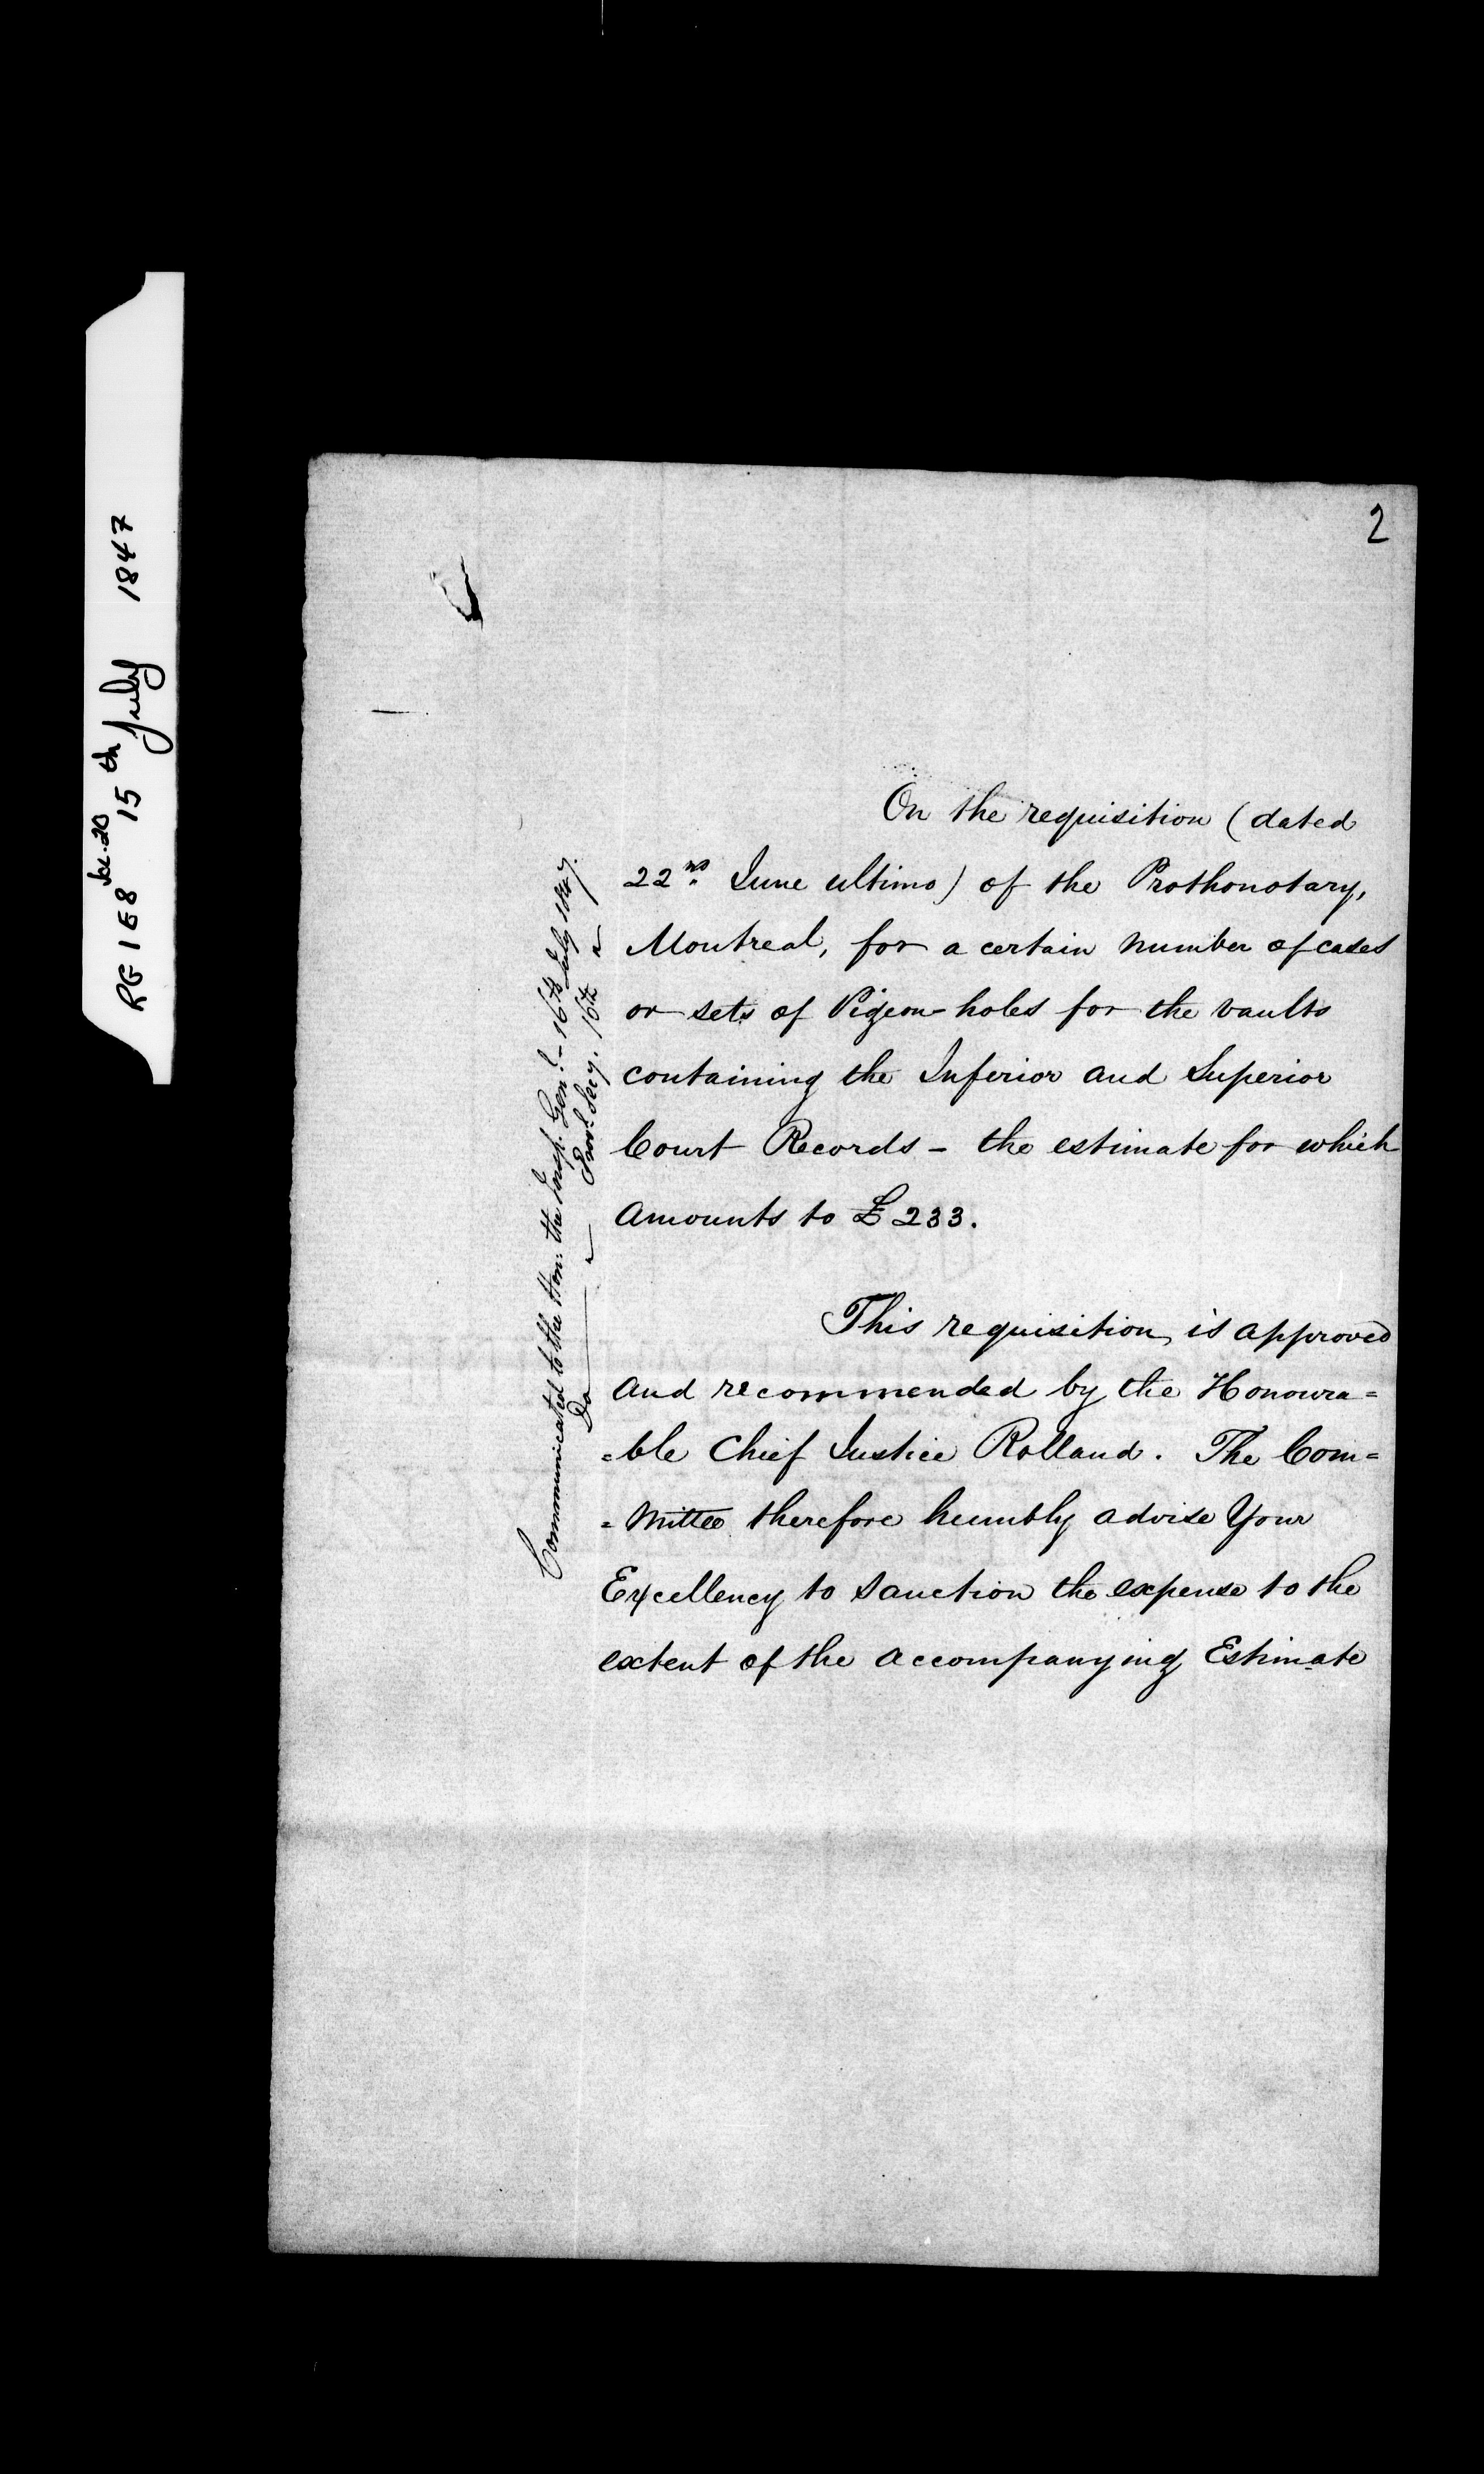 RG 1 E8 Vol. 20 15th July 1847
2
On the requisition (dated
22nd June ultimo) of the Prothonotary,
Montreal, for a certain number of cases
or sets of Pigeon-holes for the vaults
containing the Inferior and Superior
Court Records - the estimate for which
amounts to £233.
This requisition is approved
and recommended by the Honoura=
=ble Chief Justice Rolland. The Com=
=mittee therefore humbly advise Your
Excellency to sanction the expense to the
extent of the accompanying Estimate
Communicated to the Hon: the Insp. Genl. - 16th July 1847.
Do " Provl Secy. 16th "